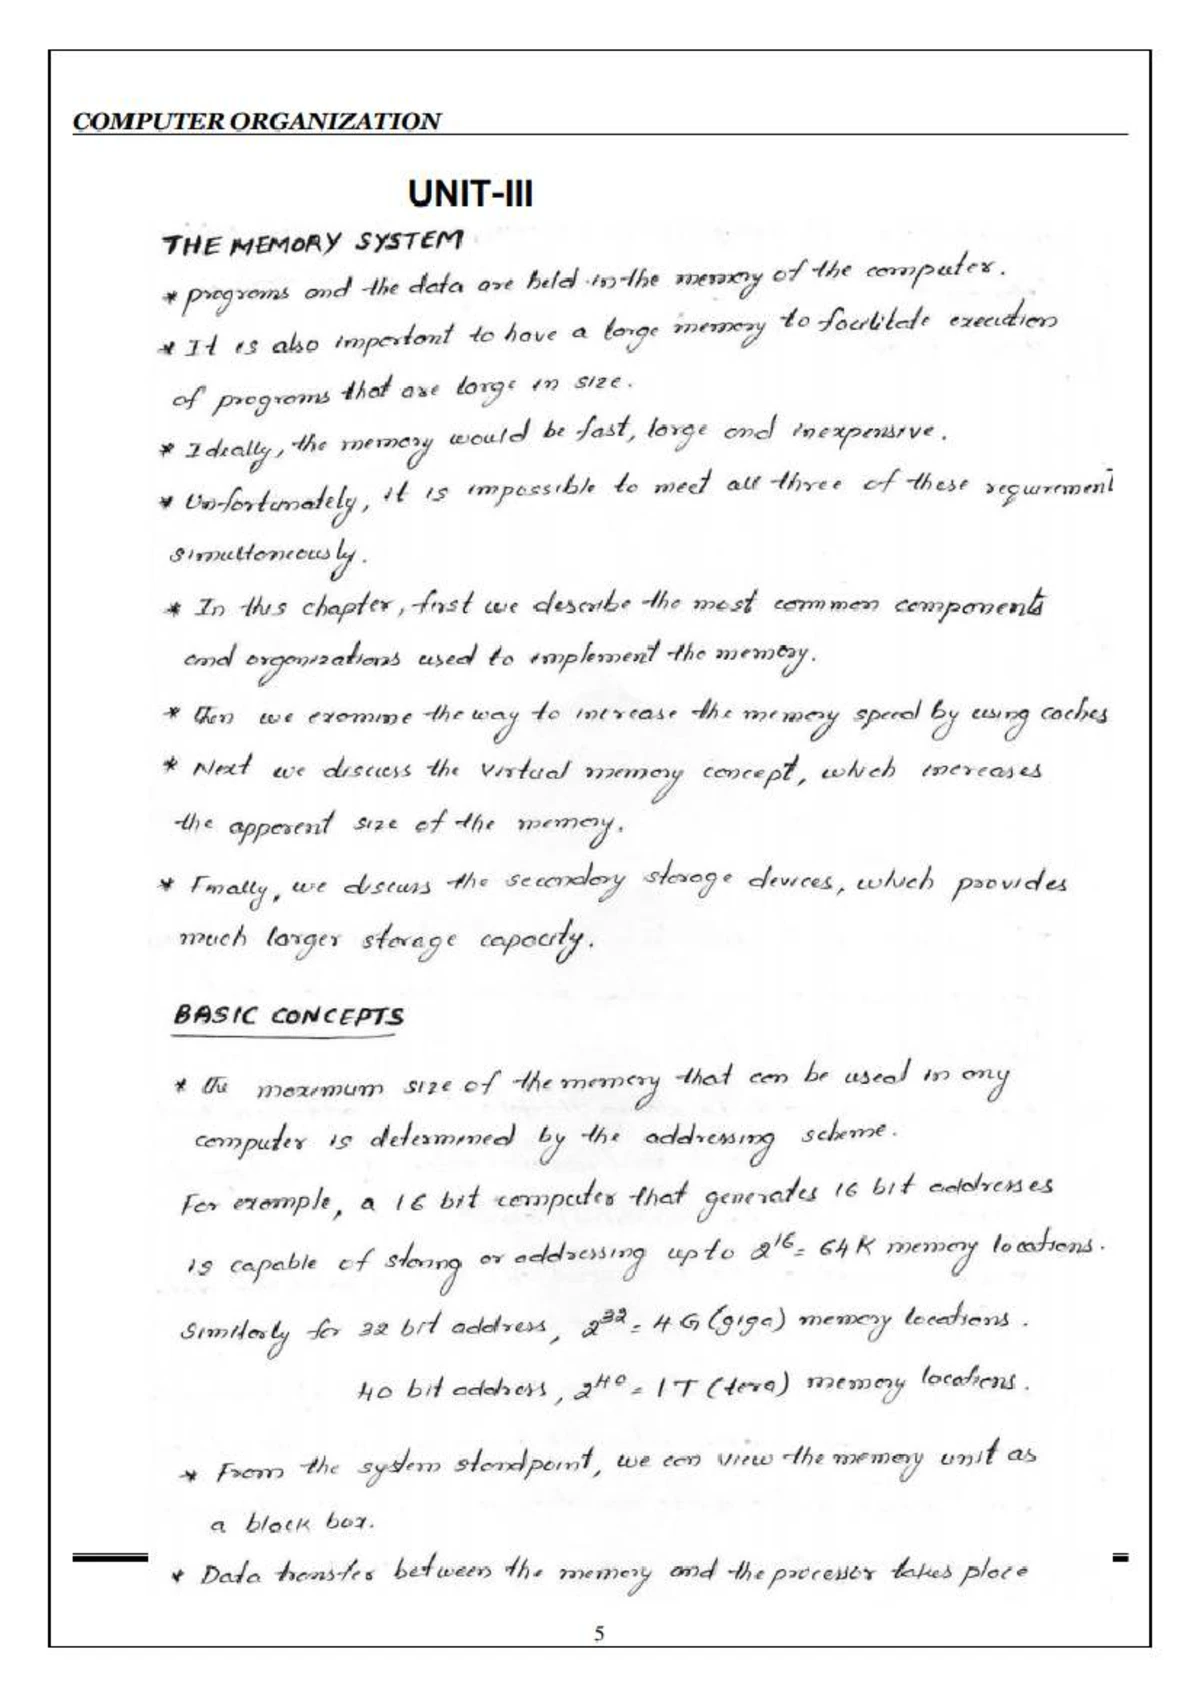 COMPUTER ORGANIZATION
UNIT-III
THE MEMORY SYSTEM
* programs and the data are held in the memory of the computer.
* It is also important to have a large memory to facilitate execution
of programs that are large in size.
* Ideally, the memory would be fast, large and inexpensive.
* Unfortunately, it is impossible to meet all three of these requirement
simultaneously.
* In this chapter, first we describe the most common components
and organizations used to implement the memory.
* Then we examine the way to increase the memory speed by using caches
* Next we discuss the virtual memory concept, which increases
the apparent size of the memory.
* Finally, we discuss the secondary storage devices, which provides
much larger storage capacity.
BASIC CONCEPTS
* The maximum size of the memory that can be used in any
computer is determined by the addressing scheme.
For example, a 16 bit computer that generates 16 bit addresses
is capable of storing or addressing upto 2^16 = 64K memory locations.
Similarly for 32 bit address, 2^32 = 4G (giga) memory locations.
40 bit address, 2^40 = 1T (tera) memory locations.
* From the system standpoint, we can view the memory unit as
a block box.
* Data transfer between the memory and the processor takes place
5